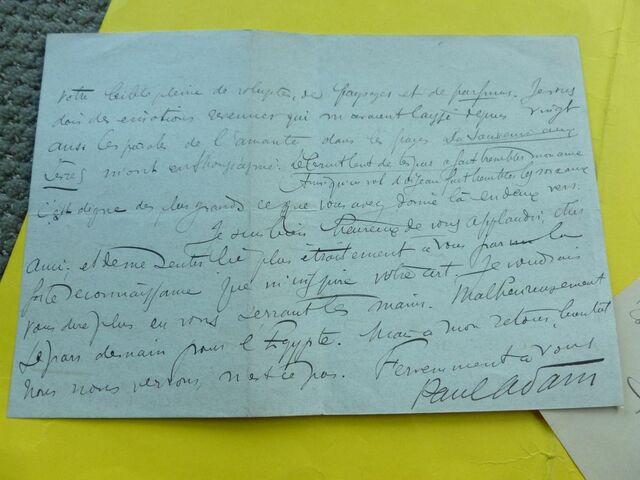 votre bible pleine de volupté, de paysages et de parfums. Je vous
dois des émotions revenues qui m'avaient laissé depuis vingt
ans. Les paroles de l'amante dans les pages La Danseuse aux
m'ont enthousiasmé. le bruit lent de tes pas a fait trembler mon âme
Ainsi qu'un vol d'oiseau fait trembler les roseaux
C'est digne des plus grands ce que vous avez donné là en deux vers.
Je suis bien heureux de vous applaudir, cher
ami, et de me sentir lié plus étroitement à vous par la
forte reconnaissance que m'inspire votre art. Je voudrais
vous dire plus en vous serrant les mains. Malheureusement
Je pars demain pour l'Egypte. Mais à mon retour, bientôt
nous nous verrons, n'est-ce pas. Fervemment à vous
Paul Adam